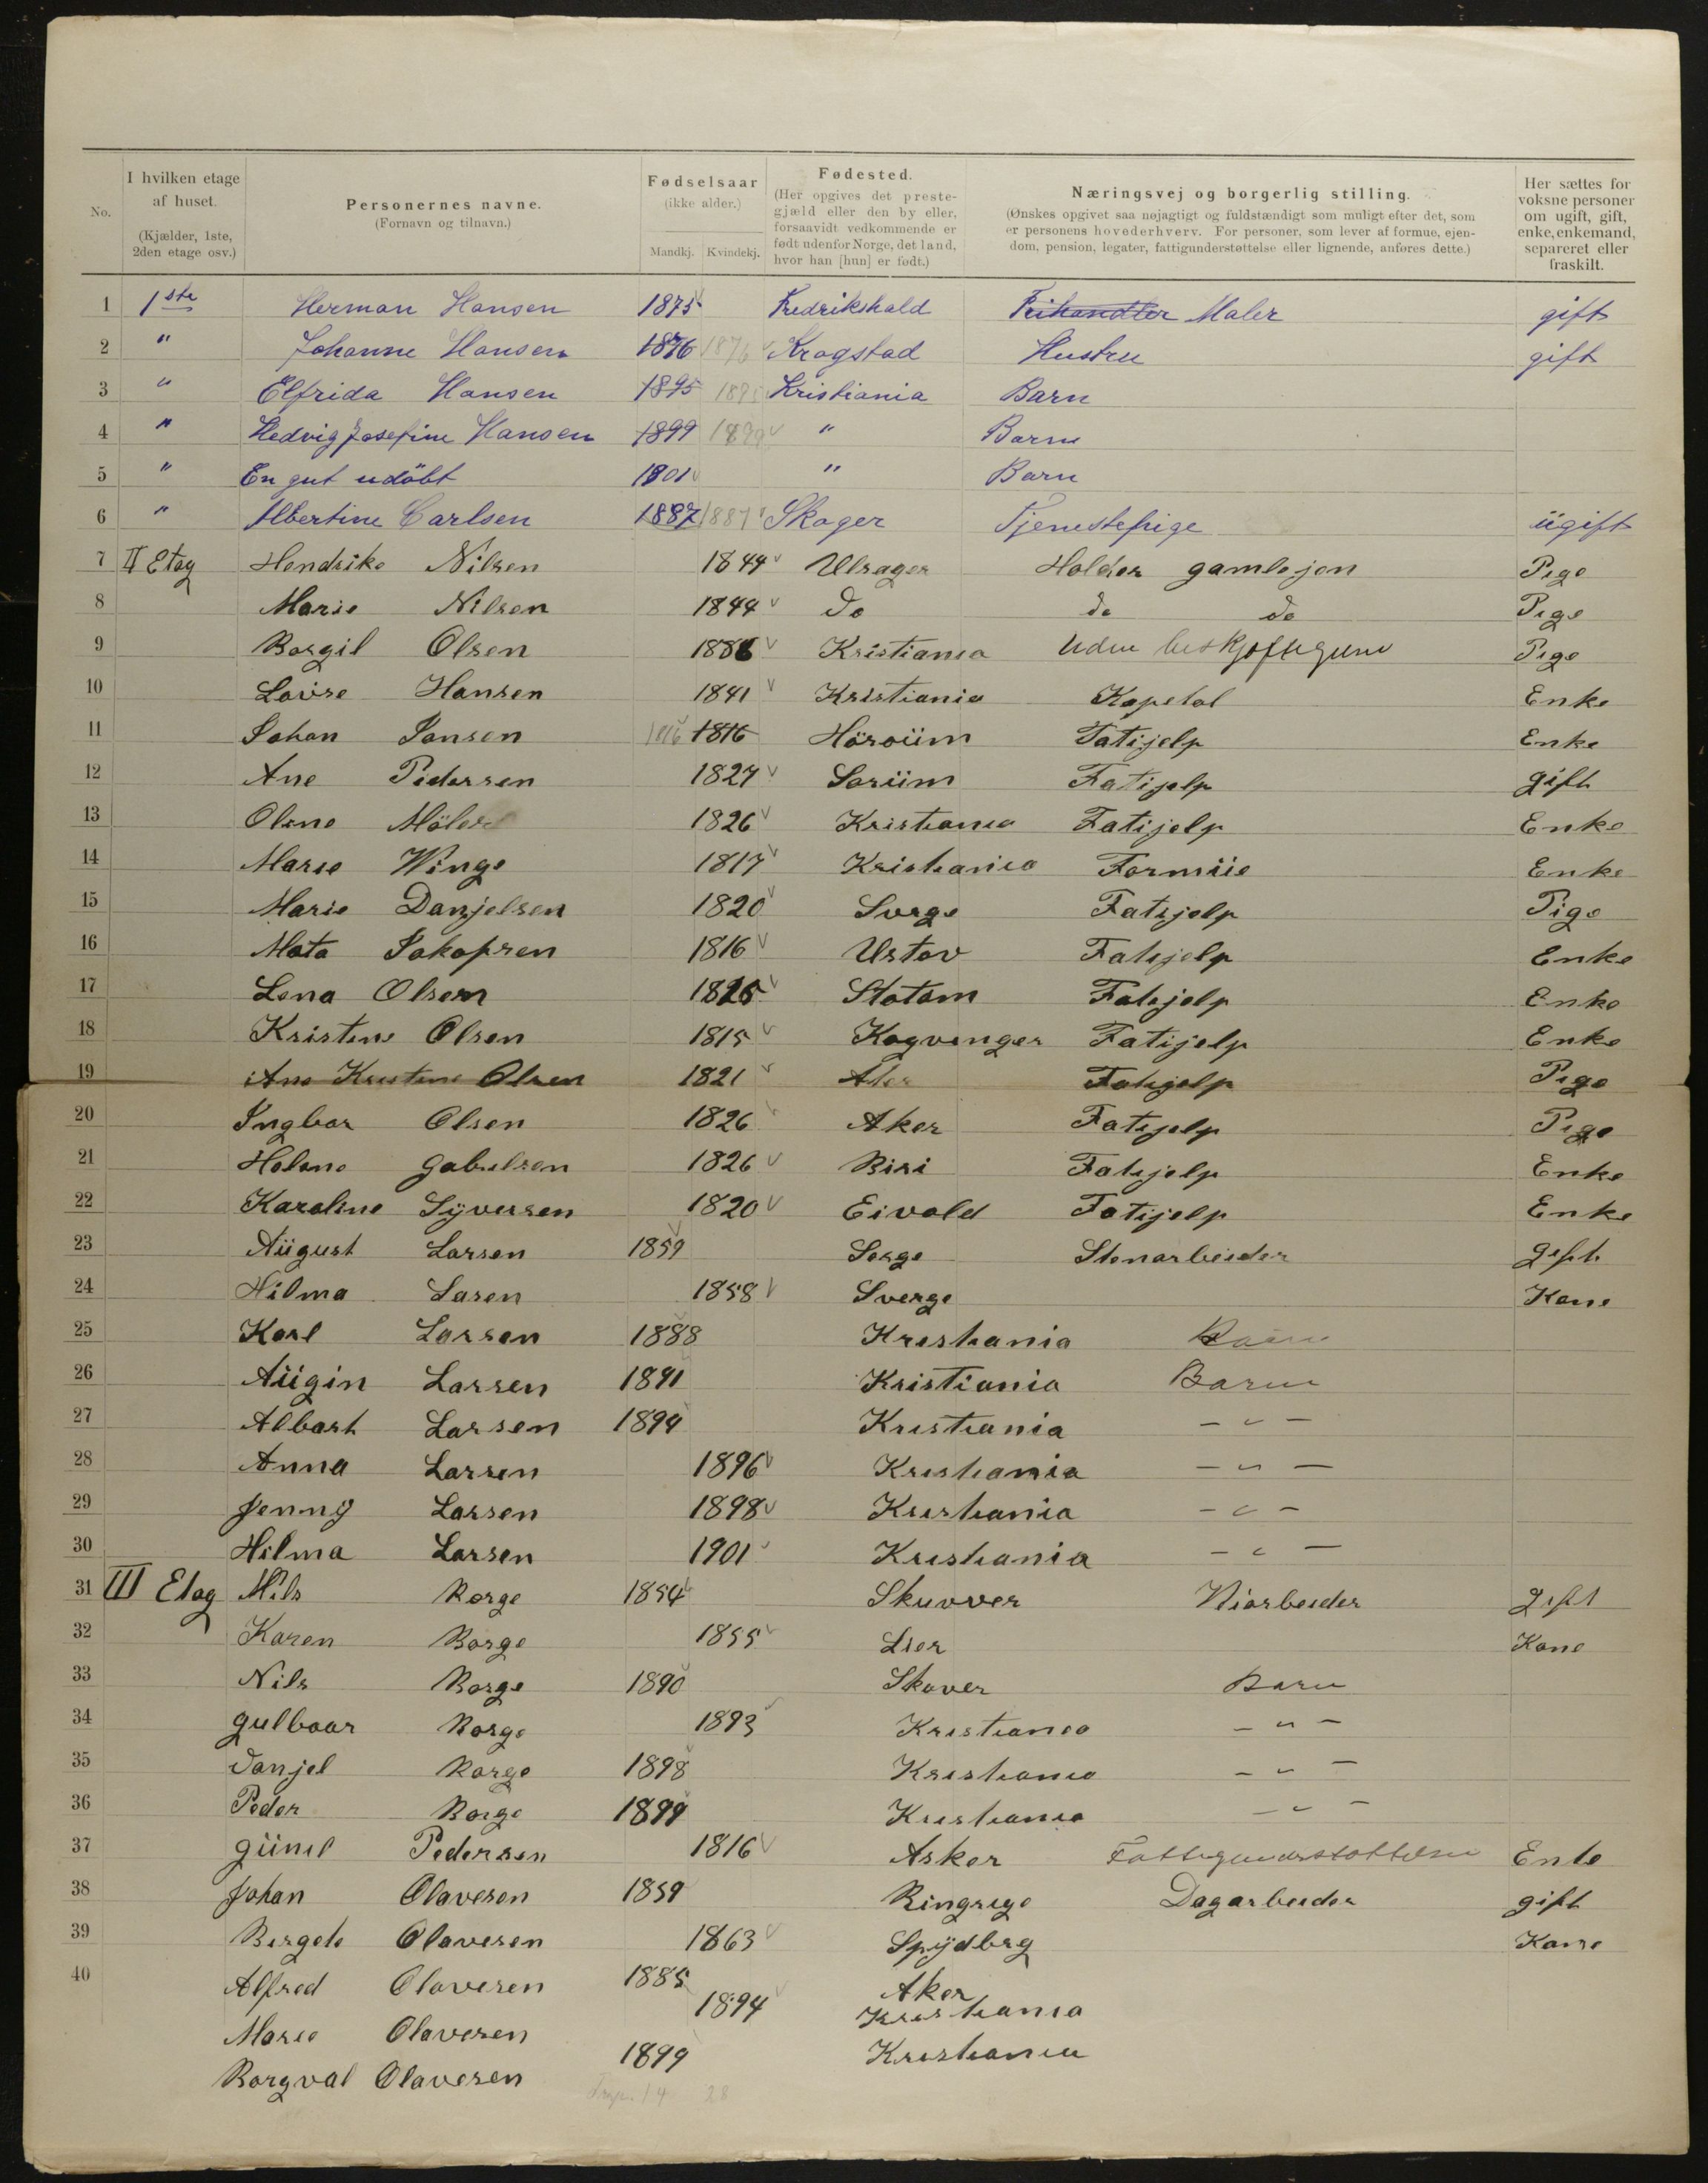 No.
I hvilken etage af huset. (Kjælder, 1ste, 2den etage osv.)
Personernes navne. (Fornavn og tilnavn.)
Fødselsaar (ikke alder.) Mandkj. Kvindekj.
Fødested. (Her opgives det prestegjæld eller den by eller, forsaavidt vedkommende er født udenfor Norge, det land, hvor han [hun] er født.)
Næringsvej og borgerlig stilling. (Ønskes opgivet saa nøjagtigt og fuldstændigt som muligt efter det, som er personens hovederhverv. For personer, som lever af formue, ejendom, pension, legater, fattigunderstøttelse eller lignende, anføres dette.)
Her sættes for voksne personer om ugift, gift, enke, enkemand, separeret eller fraskilt.
1 1ste Herman Hansen 1875 Fredrikshald Frihandler Maler gift
2 " Johanne Hansen 1876 1876 Kragstad Hustru gift
3 " Elfrida Hansen 1895 1895 Kristiania Barn
4 " Hedvig Josefine Hansen 1899 1899 " Barn
5 " En gut udöbt 1901 " Barn
6 " Albertine Carlsen 1887 1887 Skoger Tjenestepige ügift
7 II Etag Hendrike Nilsen 1844 Ulsager Holder gamlejen Pige
8 Marie Nilsen 1844 do do do Pige
9 Borgil Olsen 1886 Kristiania Uden beskjeftigune Pige
10 Lovise Hansen 1841 Kristiania Kapetal Enke
11 Johan Jansen 1816 1816 Höroüm Fatijelp Enke
12 Ane Pedersen 1827 Sorüm Fatijelp gift
13 Oline Möler 1826 Kristiania Fatijelp Enke
14 Marie Winge 1817 Kristiania Formüe Enke
15 Marie Danjelsen 1820 Sverge Fatijelp Pige
16 Mata Jakopsen 1816 Ustov Fatijelp Enke
17 Lena Olsen 1825 Statam Fatijelp Enke
18 Kristine Olsen 1815 Kogvenger Fatijelp Enke
19 Ane Kristine Olsen 1821 Aker Fatijelp Pige
20 Ingbor Olsen 1826 Aker Fatijelp Pige
21 Helene Gabrelsen 1826 Biri Fatijelp Enke
22 Karoline Syversen 1820 Eivold Fatijelp Enke
23 Aügust Larsen 1859 Serge Stenarbeider gift
24 Hilma Lasen 1858 Sverge Kone
25 Karl Larsen 1888 Kristiania Barn
26 Aügin Larsen 1891 Kristiania Barn
27 Albart Larsen 1894 Kristiania - " -
28 Anna Larsen 1896 Kristiania - " -
29 Jenny Larsen 1898 Kristiania - " -
30 Hilma Larsen 1901 Kristiania - " -
31 III Etag Nils Borge 1854 Skuvver Niarbeider gift
32 Karen Borge 1855 Lier Kone
33 Nils Borge 1890 Skover Barn
34 Gulboar Borge 1893 Kristiania - " -
35 Danjel Borge 1898 Kristiania - " -
36 Peder Borge 1899 Kristiania - " -
37 Günil Pedersen 1816 Asker Fattigunderstøttelse Enke
38 Johan Olavesen 1859 Ringrige Dagarbeider gift
39 Bergete Olavesen 1863 Spydbrg Kone
40 Alfred Olavesen 1885 Aker
Marie Olavesen 1894 Kristiania
Borgval Olavesen 1899 Kristiania
14 28